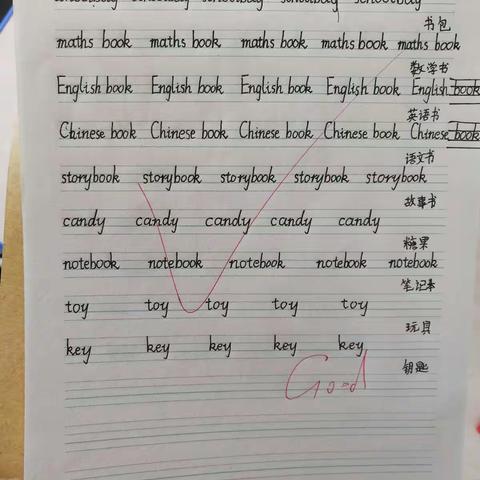 schoolbag schoolbag schoolbag schoolbag schoolbag
书包
maths book maths book maths book maths book maths book
数学书
English book English book English book English book English book
英语书
Chinese book Chinese book Chinese book Chinese book Chinese book
语文书
storybook storybook storybook storybook storybook
故事书
candy candy candy candy candy
糖果
notebook notebook notebook notebook notebook
笔记本
toy toy toy toy toy
玩具
key key key key key
钥匙
Good